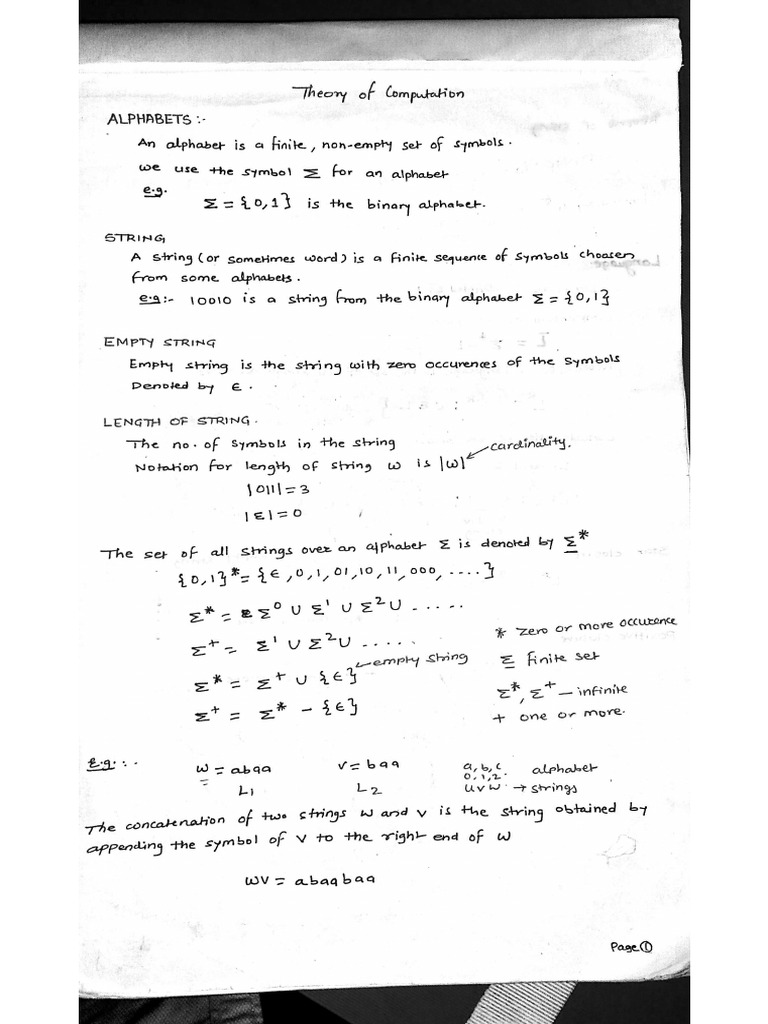 Theory of Computation
ALPHABETS :-
An alphabet is a finite, non-empty set of symbols.
we use the symbol Σ for an alphabet
e.g.
Σ = {0,1} is the binary alphabet.
STRING
A string (or sometimes word) is a finite sequence of symbols choosen
from some alphabets.
e.g:- 10010 is a string from the binary alphabet Σ = {0,1}
EMPTY STRING
Empty string is the string with zero occurences of the symbols
Denoted by ε.
LENGTH OF STRING.
The no. of symbols in the string
Notation for length of string w is |w| cardinality.
|011| = 3
|ε| = 0
The set of all strings over an alphabet Σ is denoted by Σ*
{0,1}* = {ε,0,1,01,10,11,000,....}
Σ* = Σ⁰ ∪ Σ¹ ∪ Σ² ∪ .....
Σ⁺ = Σ¹ ∪ Σ² ∪ .....
* zero or more occurence
Σ* = Σ⁺ ∪ {ε} empty string
Σ finite set
Σ⁺ = Σ* - {ε}
Σ*, Σ⁺ - infinite
+ one or more.
E.g. :-
w = abaa v = baa a,b,c alphabet
0,1,2.
L1 L2 u v w → strings
The concatenation of two strings w and v is the string obtained by
appending the symbol of v to the right end of w
wv = abaabaa
Page 1